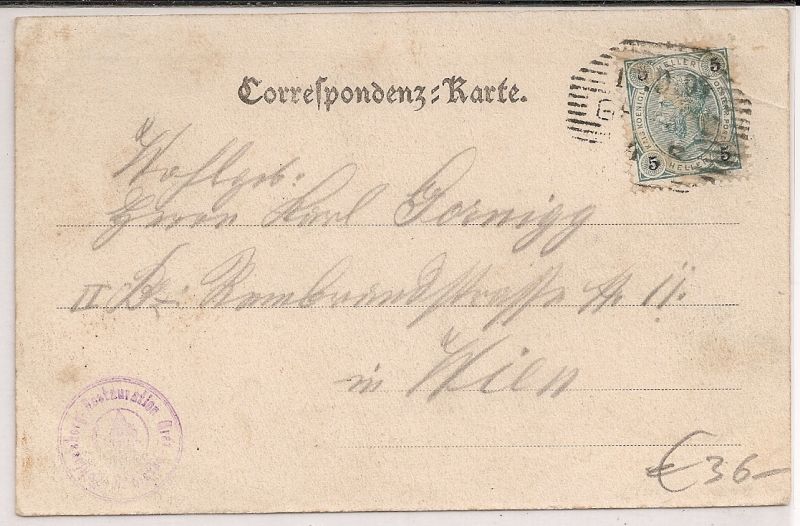 Correspondenz-Karte.
5 HELLER 5
5 HELLER 5
Wohlgeb:
Herrn Karl Gornigg
II Bz: Rembrandstrasse N. 11.
in Wien
Restauration
€ 36-